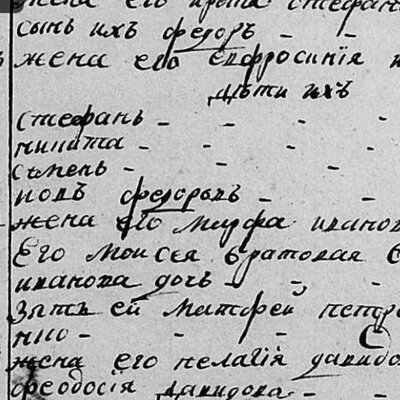 жена его ирина стефан
сынъ ихъ федоръ - -
жена его евфросинїя и
дѣти ихъ
стефанъ - - - -
никита - - - -
симень - - - -
попъ федоровъ - -
жена его марфа иванов
Его Моисея братовая
иванова дочь - - -
Зять ей Матфей петро
- - - -
жена его пелагїя давидо
феодосїя давидова - -